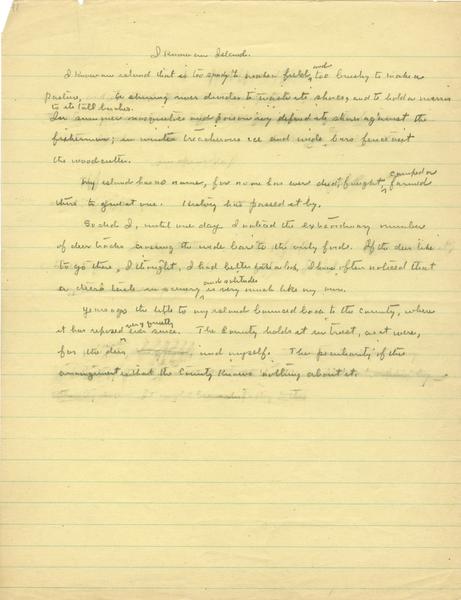 I Know an Island.
I know an island that is too sandy to make a field, and too brushy to make a
pasture. The shining river divides to wash its shores, and to hold a mirror
to its tall birches.
In summer mosquitoes and poison ivy defend its shores against the
fisherman; in winter treacherous ice and wide bars fence out
the woodcutter.
My island has no name, for no one has ever died, fought, camped or farmed
there to give it one. History has passed it by.
So did I, until one day I noticed the extraordinary number
of deer tracks crossing the wide bars to the
If the deer like
to go there, I thought, I had better take a look. I have often noticed that
a deer's taste in scenery and solitudes is very much like my own.
Years ago the title to my island bounced back to the county, where
it has reposed very quietly ever since. The County holds it in trust, as it were,
for the deer, and myself. The peculiarity of this
arrangement is that the County knows nothing about it.